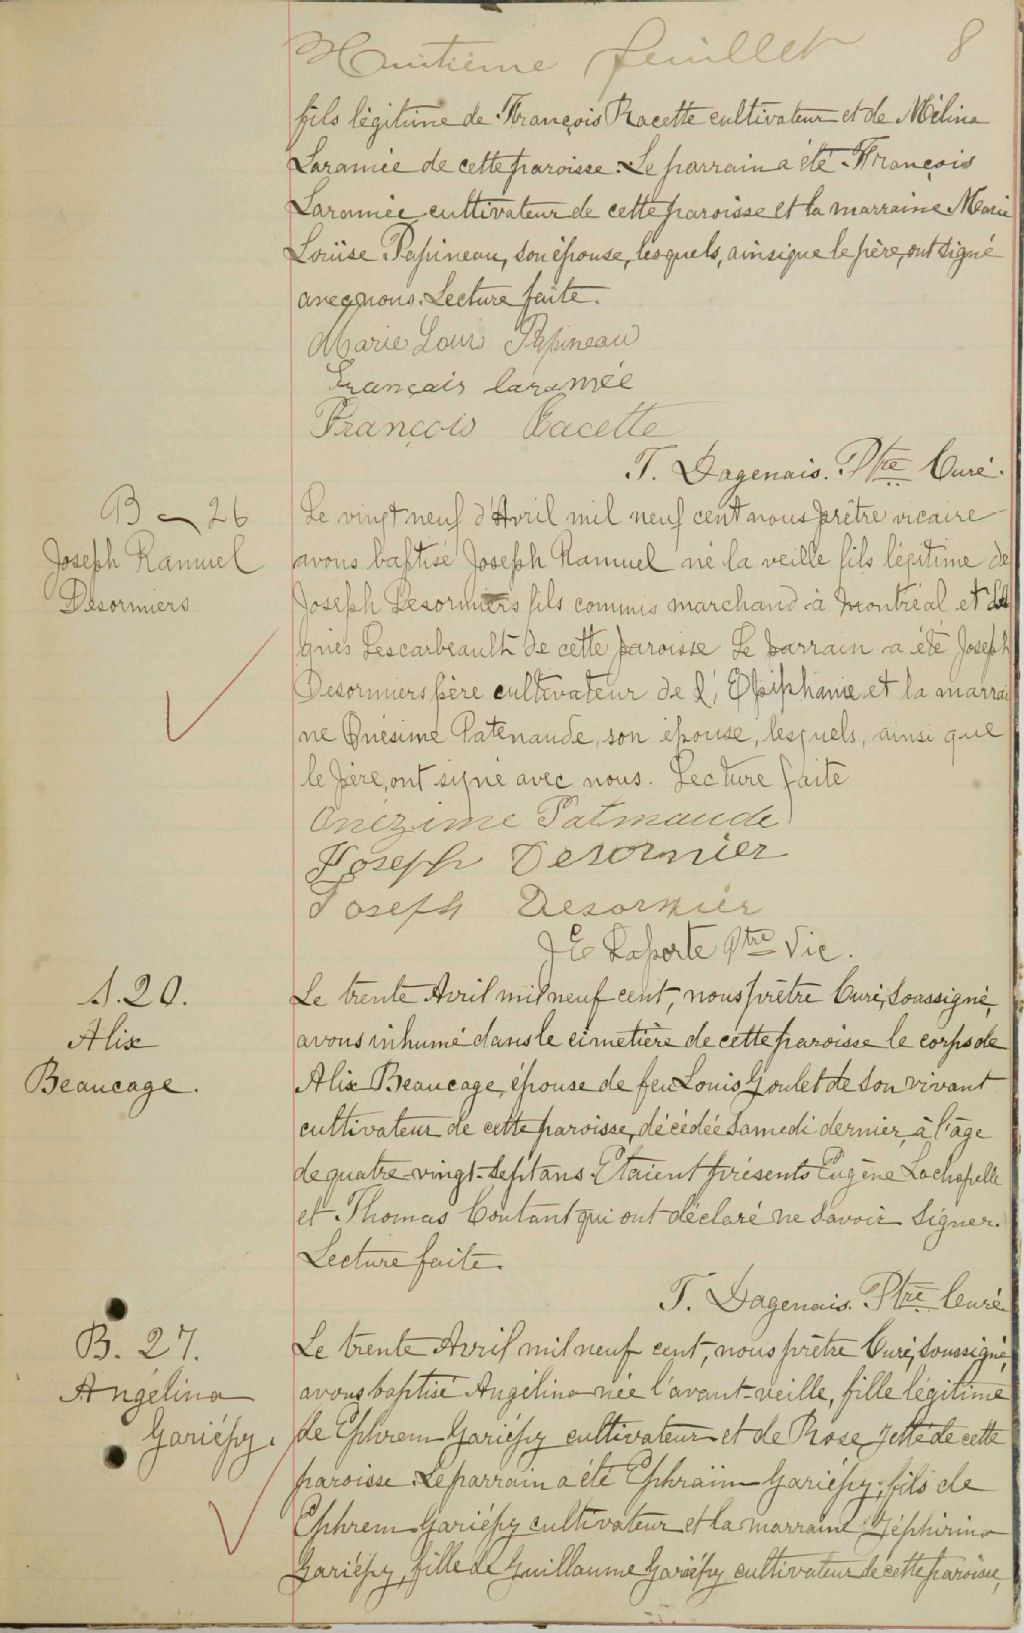 Huitième feuillet 8
fils légitime de François Racette cultivateur et de Mélina
Laramée de cette paroisse. Le parrain a été François
Laramée cultivateur de cette paroisse et la marraine Marie
Louise Papineau, son épouse, lesquels, ainsi que le père, ont signé
avec nous. Lecture faite.
Marie Louis Papineau
Français laramée
François Racette
T. Dagenais. Ptre Curé.
B - 26
Joseph Ramuel
Desormiers
Le vingt neuf d'Avril mil neuf cent nous prêtre vicaire
avons baptisé Joseph Ramuel né la veille fils légitime de
Joseph Desormiers fils commis marchand à Montréal et
gnès Lescarbeault de cette paroisse Le parrain a été Joseph
Desormiers père cultivateur de l'Epiphanie et la marrai
ne Onésime Patenaude, son épouse, lesquels, ainsi que
le père, ont signé avec nous. Lecture faite
Onézime Patmaude
Joseph Desormier
Joseph Desormier
J E Laporte Ptre Vic.
S. 20.
Alix
Beaucage.
Le trente Avril mil neuf cent, nous prêtre Curé, soussigné,
avons inhumé dans le cimetière de cette paroisse le corps de
Alix Beaucage, épouse de feu Louis Goulet de son vivant
cultivateur de cette paroisse, décédée samedi dernier, à l'âge
de quatre-vingt-sept ans. Etaient présents Eugène Lachapelle
et Thomas Coutant qui ont déclaré ne savoir signer.
Lecture faite.
T. Dagenais. Ptre Curé
B. 27.
Angélina
Gariépy.
Le trente Avril mil neuf cent, nous prêtre Curé, soussigné,
avons baptisé Angélina née l'avant-veille, fille légitime
de Ephrem Gariépy cultivateur et de Rose Jetté de cette
paroisse. Le parrain a été Ephraïm Gariépy, fils de
Ephrem Gariépy cultivateur et la marraine Zéphirina
Gariépy, fille de Guillaume Gariépy cultivateur de cette paroisse,